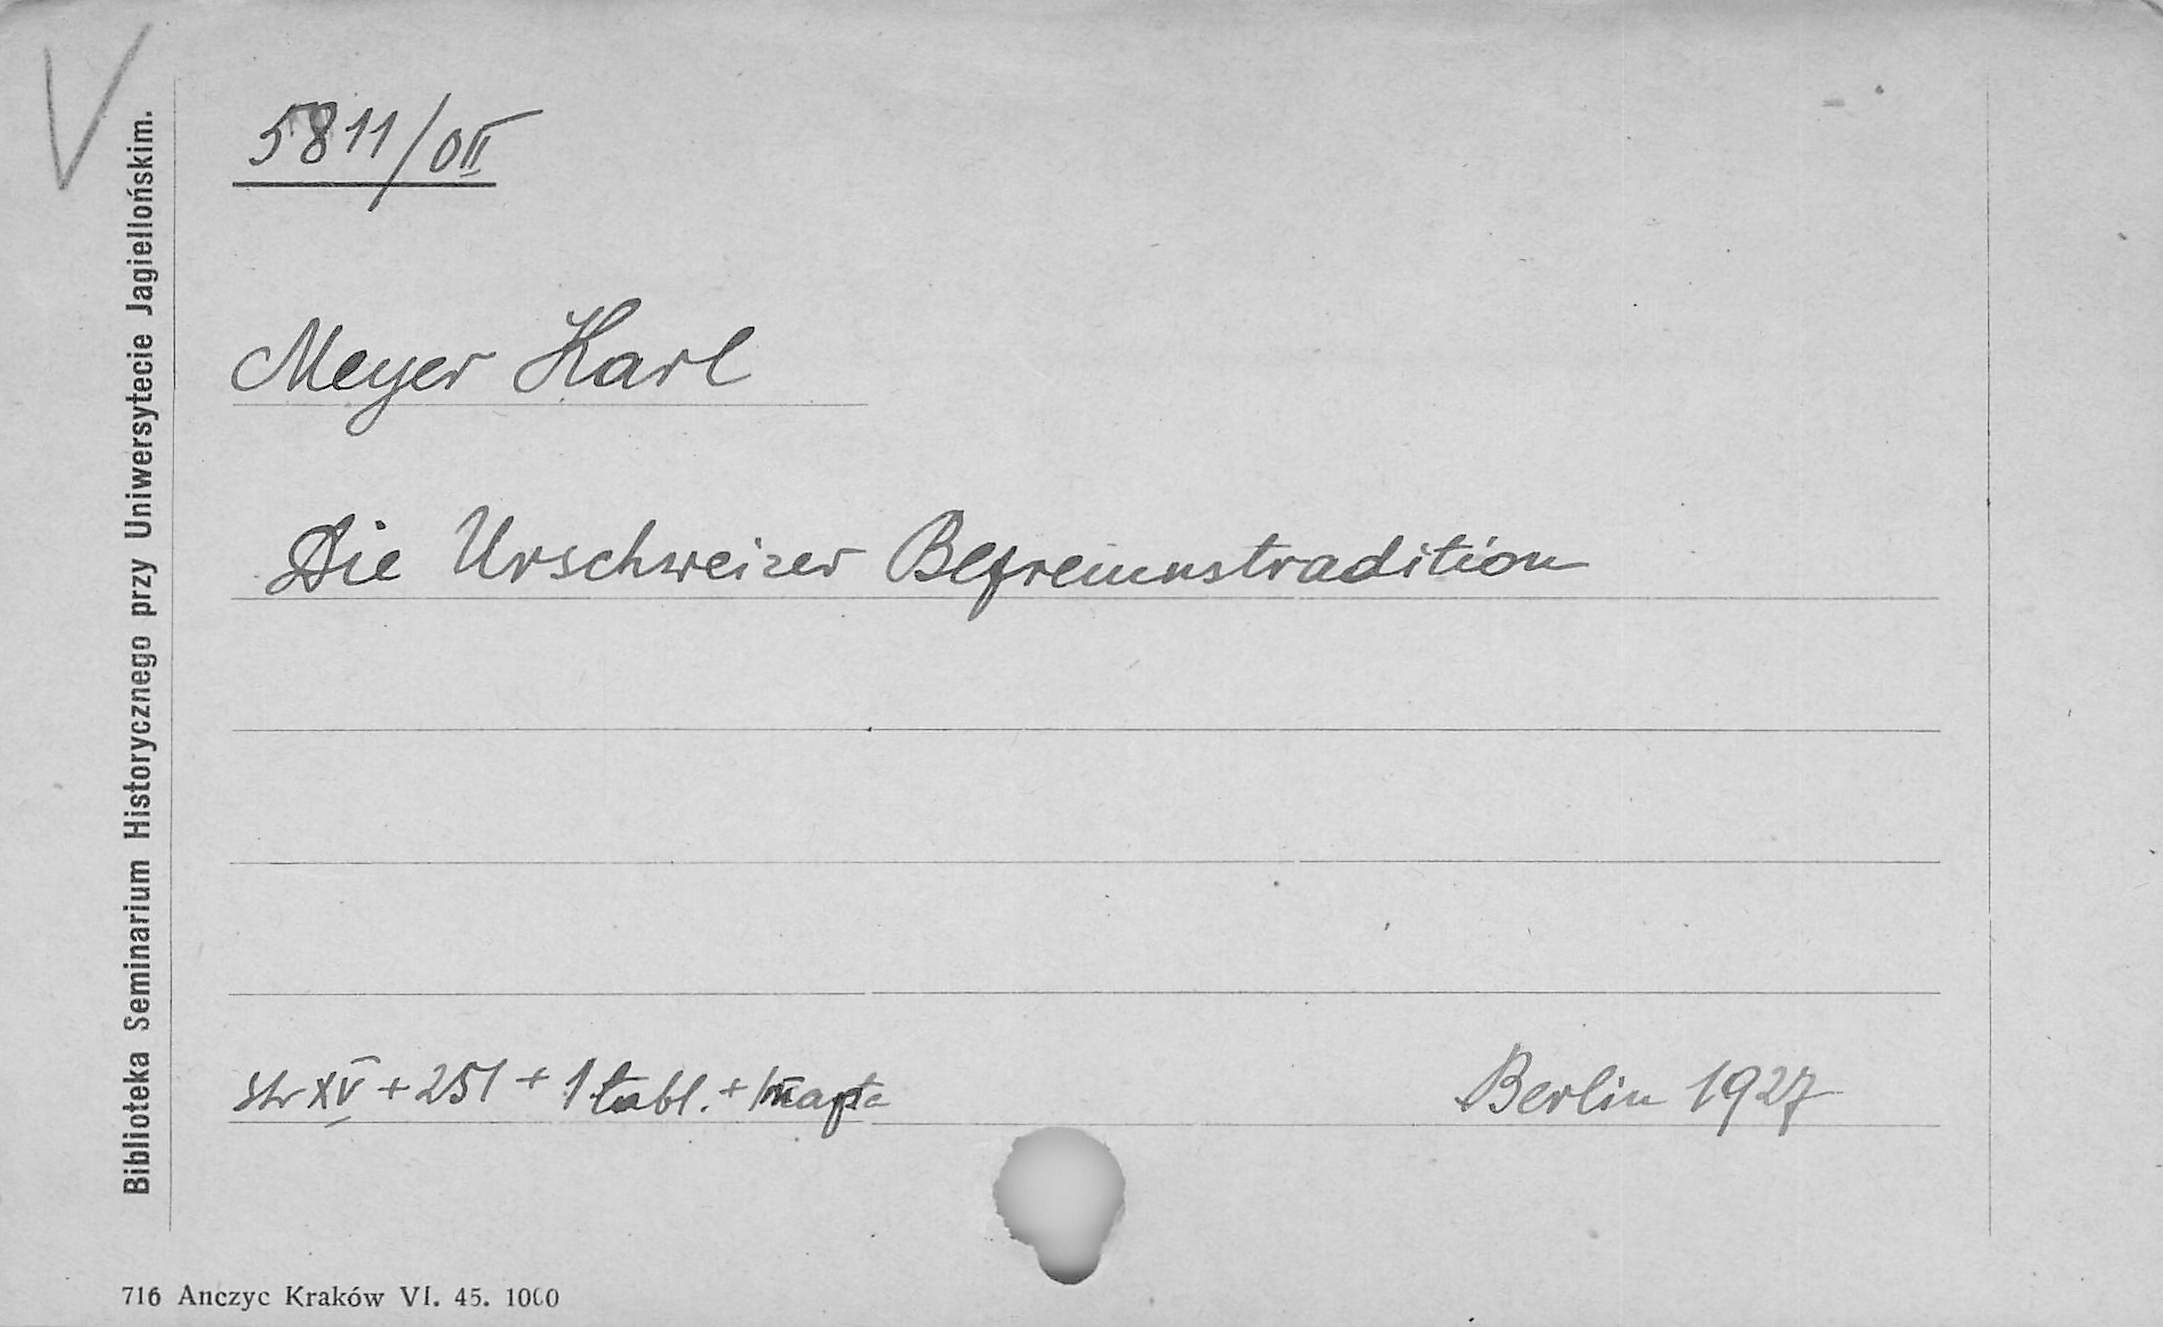 V
5811/0II
Meyer Karl
Die Urschweizer Befreiunstradition
str XV + 251 + 1 tabl. + 1 mapa
Berlin 1927
Biblioteka Seminarium Historycznego przy Uniwersytecie Jagiellońskim.
716 Anczyc Kraków VI. 45. 1000